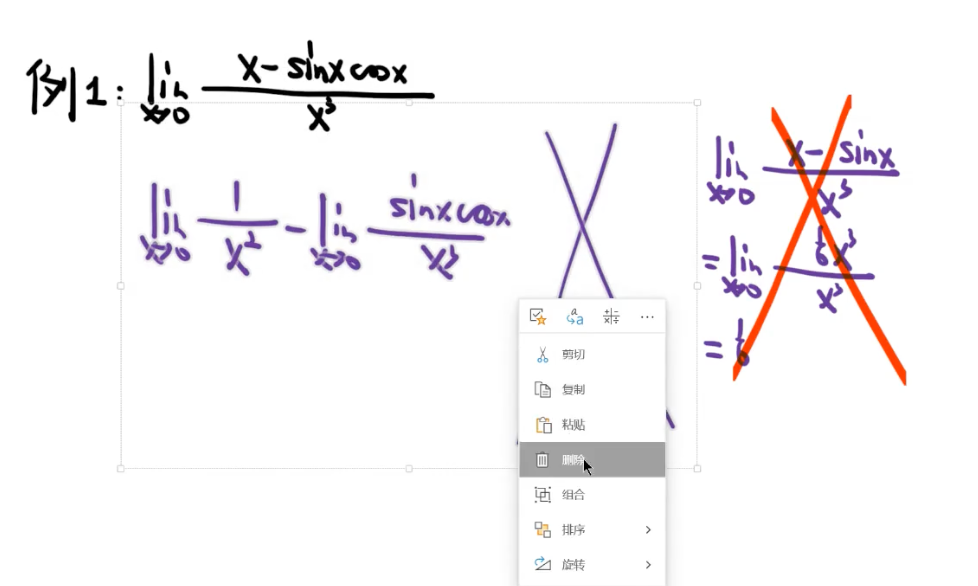 例1: lim x→0 x-sinxcosx / x³
lim x→0 1 / x² - lim x→0 sinxcosx / x³
lim x→0 x- sinx / x³
= lim x→0 1/6 x³ / x³
= 1/6
剪切
复制
粘贴
删除
组合
排序
旋转